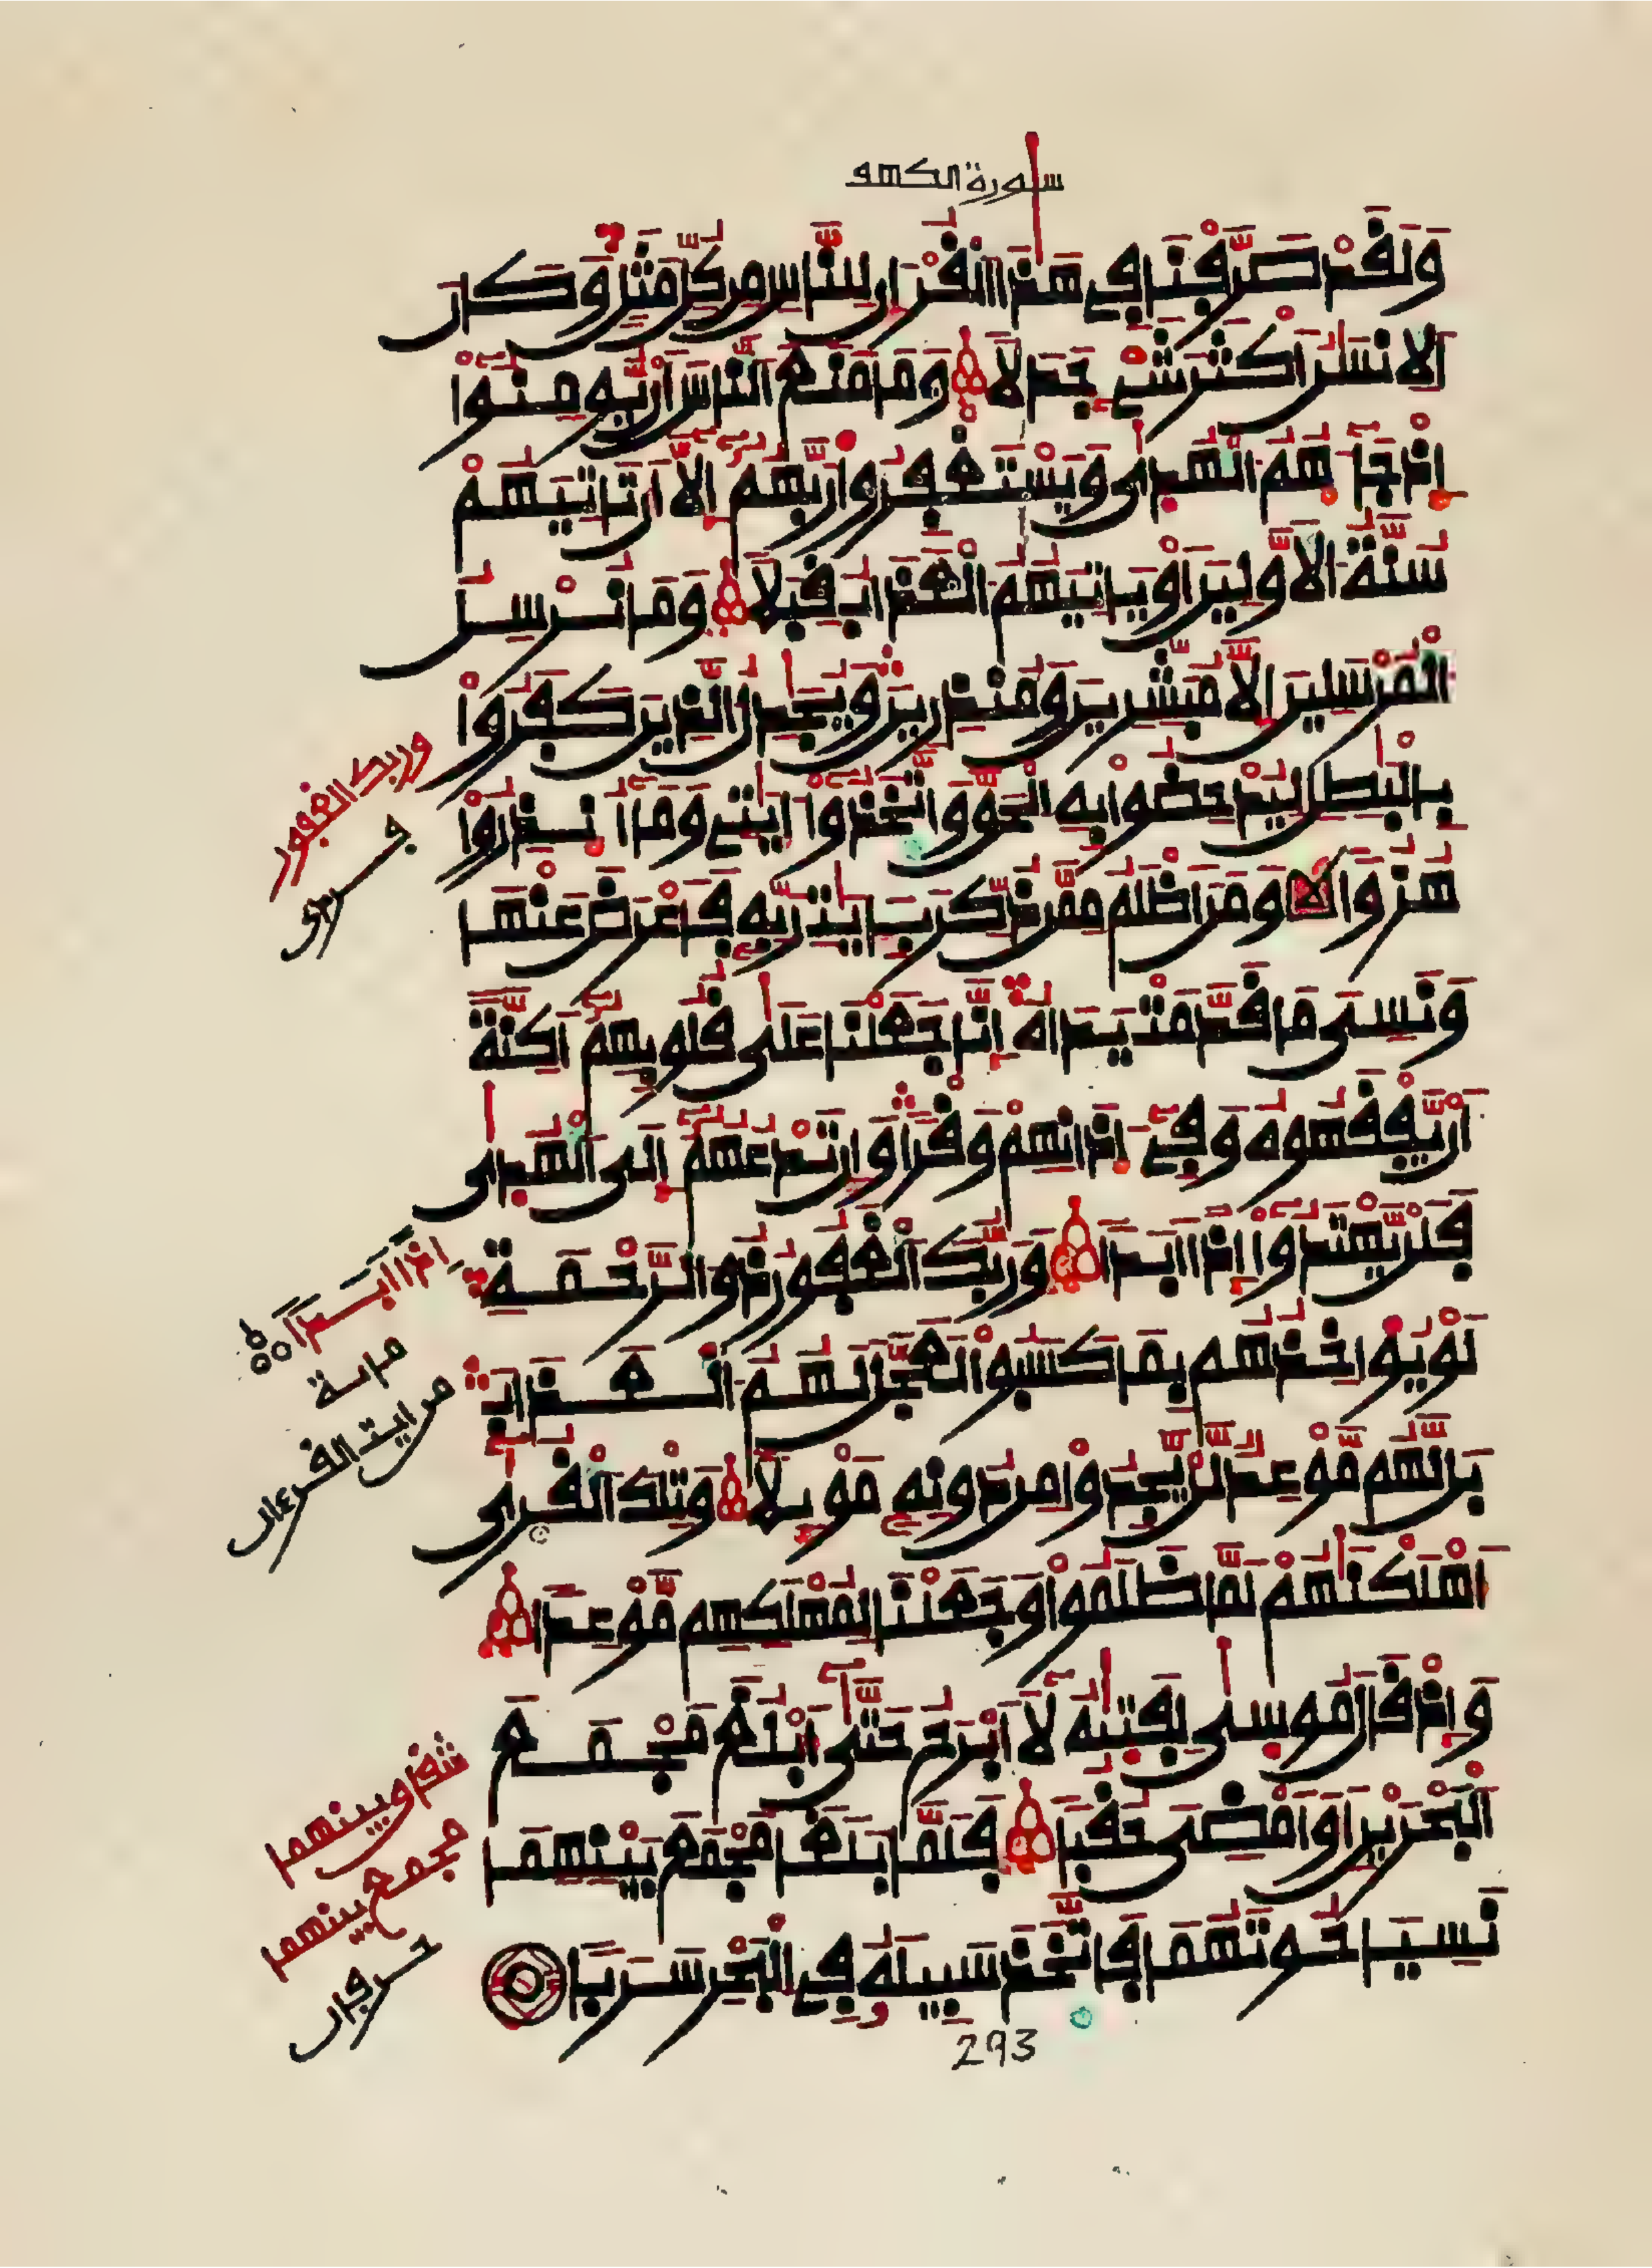 سورة الكهف
وَلَقَدْ صَرَّفْنَا فِي هَٰذَا الْقُرْءَانِ لِلنَّاسِ مِن كُلِّ مَثَلٍ وَكَانَ
الِانسَٰنُ أَكْثَرَ شَيْءٍ جَدَلًا وَمَا مَنَعَ النَّاسَ أَن يُّومِنُوا
إِذْ جَآءَهُمُ الْهُدَىٰ وَيَسْتَغْفِرُوا رَبَّهُمُ إِلَّا أَن تَاتِيَهُمْ
سُنَّةُ الَاوَّلِينَ أَوْ يَاتِيَهُمُ الْعَذَابُ قِبَلًا وَمَا نُرْسِلُ
الْمُرْسَلِينَ إِلَّا مُبَشِّرِينَ وَمُنذِرِينَ وَيُجَٰدِلُ الَّذِينَ كَفَرُوا
بِالْبَٰطِلِ لِيُدْحِضُوا بِهِ الْحَقَّ وَاتَّخَذُوا ءَايَٰتِي وَمَا أُنذِرُوا
هُزُؤًا وَمَنَ اظْلَمُ مِمَّن ذُكِّرَ بِـَٔايَٰتِ رَبِّهِ فَأَعْرَضَ عَنْهَا
وَنَسِيَ مَا قَدَّمَتْ يَدَاهُ إِنَّا جَعَلْنَا عَلَىٰ قُلُوبِهِمُ أَكِنَّةً
أَن يَّفْقَهُوهُ وَفِي ءَاذَانِهِمْ وَقْرًا وَإِن تَدْعُهُمُ إِلَى الْهُدَىٰ
فَلَن يَّهْتَدُوا إِذًا ابَدًا وَرَبُّكَ الْغَفُورُ ذُو الرَّحْمَةِ
لَوْ يُوَاخِذُهُم بِمَا كَسَبُوا لَعَجَّلَ لَهُمُ الْعَذَابَ
بَل لَّهُم مَّوْعِدٌ لَّن يَّجِدُوا مِن دُونِهِ مَوْئِلًا وَتِلْكَ الْقُرَىٰ
أَهْلَكْنَٰهُمْ لَمَّا ظَلَمُوا وَجَعَلْنَا لِمُهْلَكِهِم مَّوْعِدًا
وَإِذْ قَالَ مُوسَىٰ لِفَتَىٰهُ لَا أَبْرَحُ حَتَّىٰ أَبْلُغَ مَجْمَعَ
الْبَحْرَيْنِ أَوَ امْضِيَ حُقُبًا فَلَمَّا بَلَغَا مَجْمَعَ بَيْنِهِمَا
نَسِيَا حُوتَهُمَا فَاتَّخَذَ سَبِيلَهُ فِي الْبَحْرِ سَرَبًا
وربك الغفور
إذا ابدا
من ايت القرءان
مجمع بينهما
حرفان
293